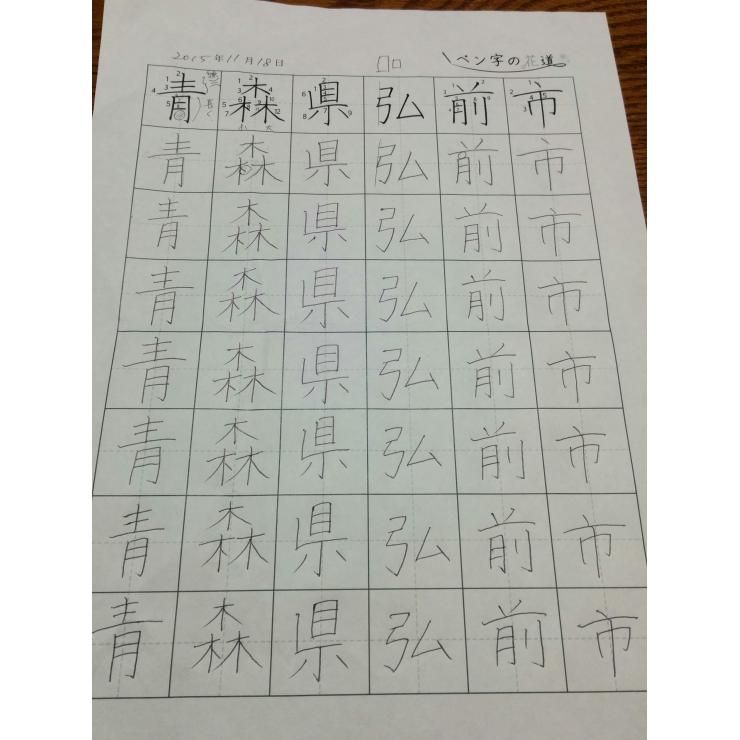 2015年11月18日 ペン字の花道
青森県弘前市
青森県弘前市
青森県弘前市
青森県弘前市
青森県弘前市
青森県弘前市
青森県弘前市
青森県弘前市